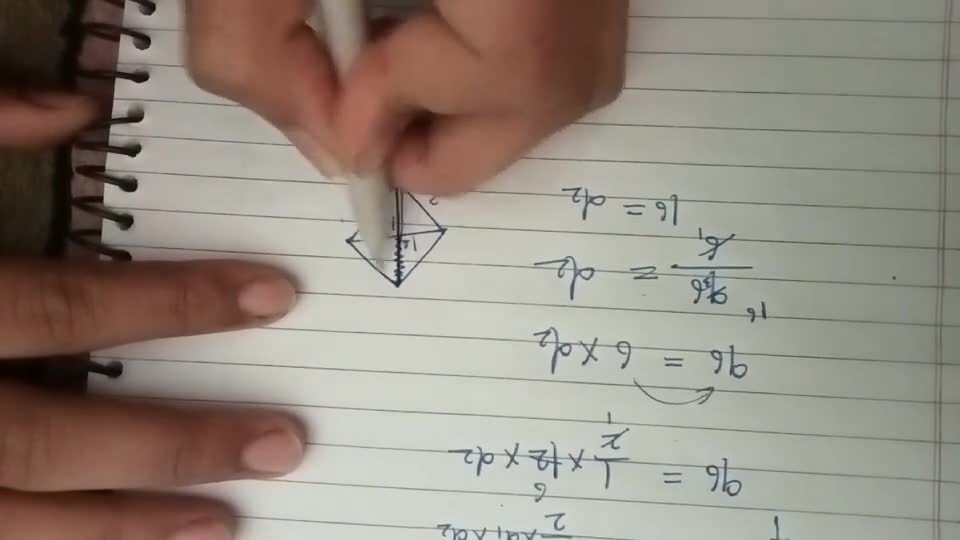 1/2 × d1 × d2
96 = 1/2 × 12 × d2
6
1
96 = 6 × d2
16
96/6 = d2
1
16 = d2
12
2